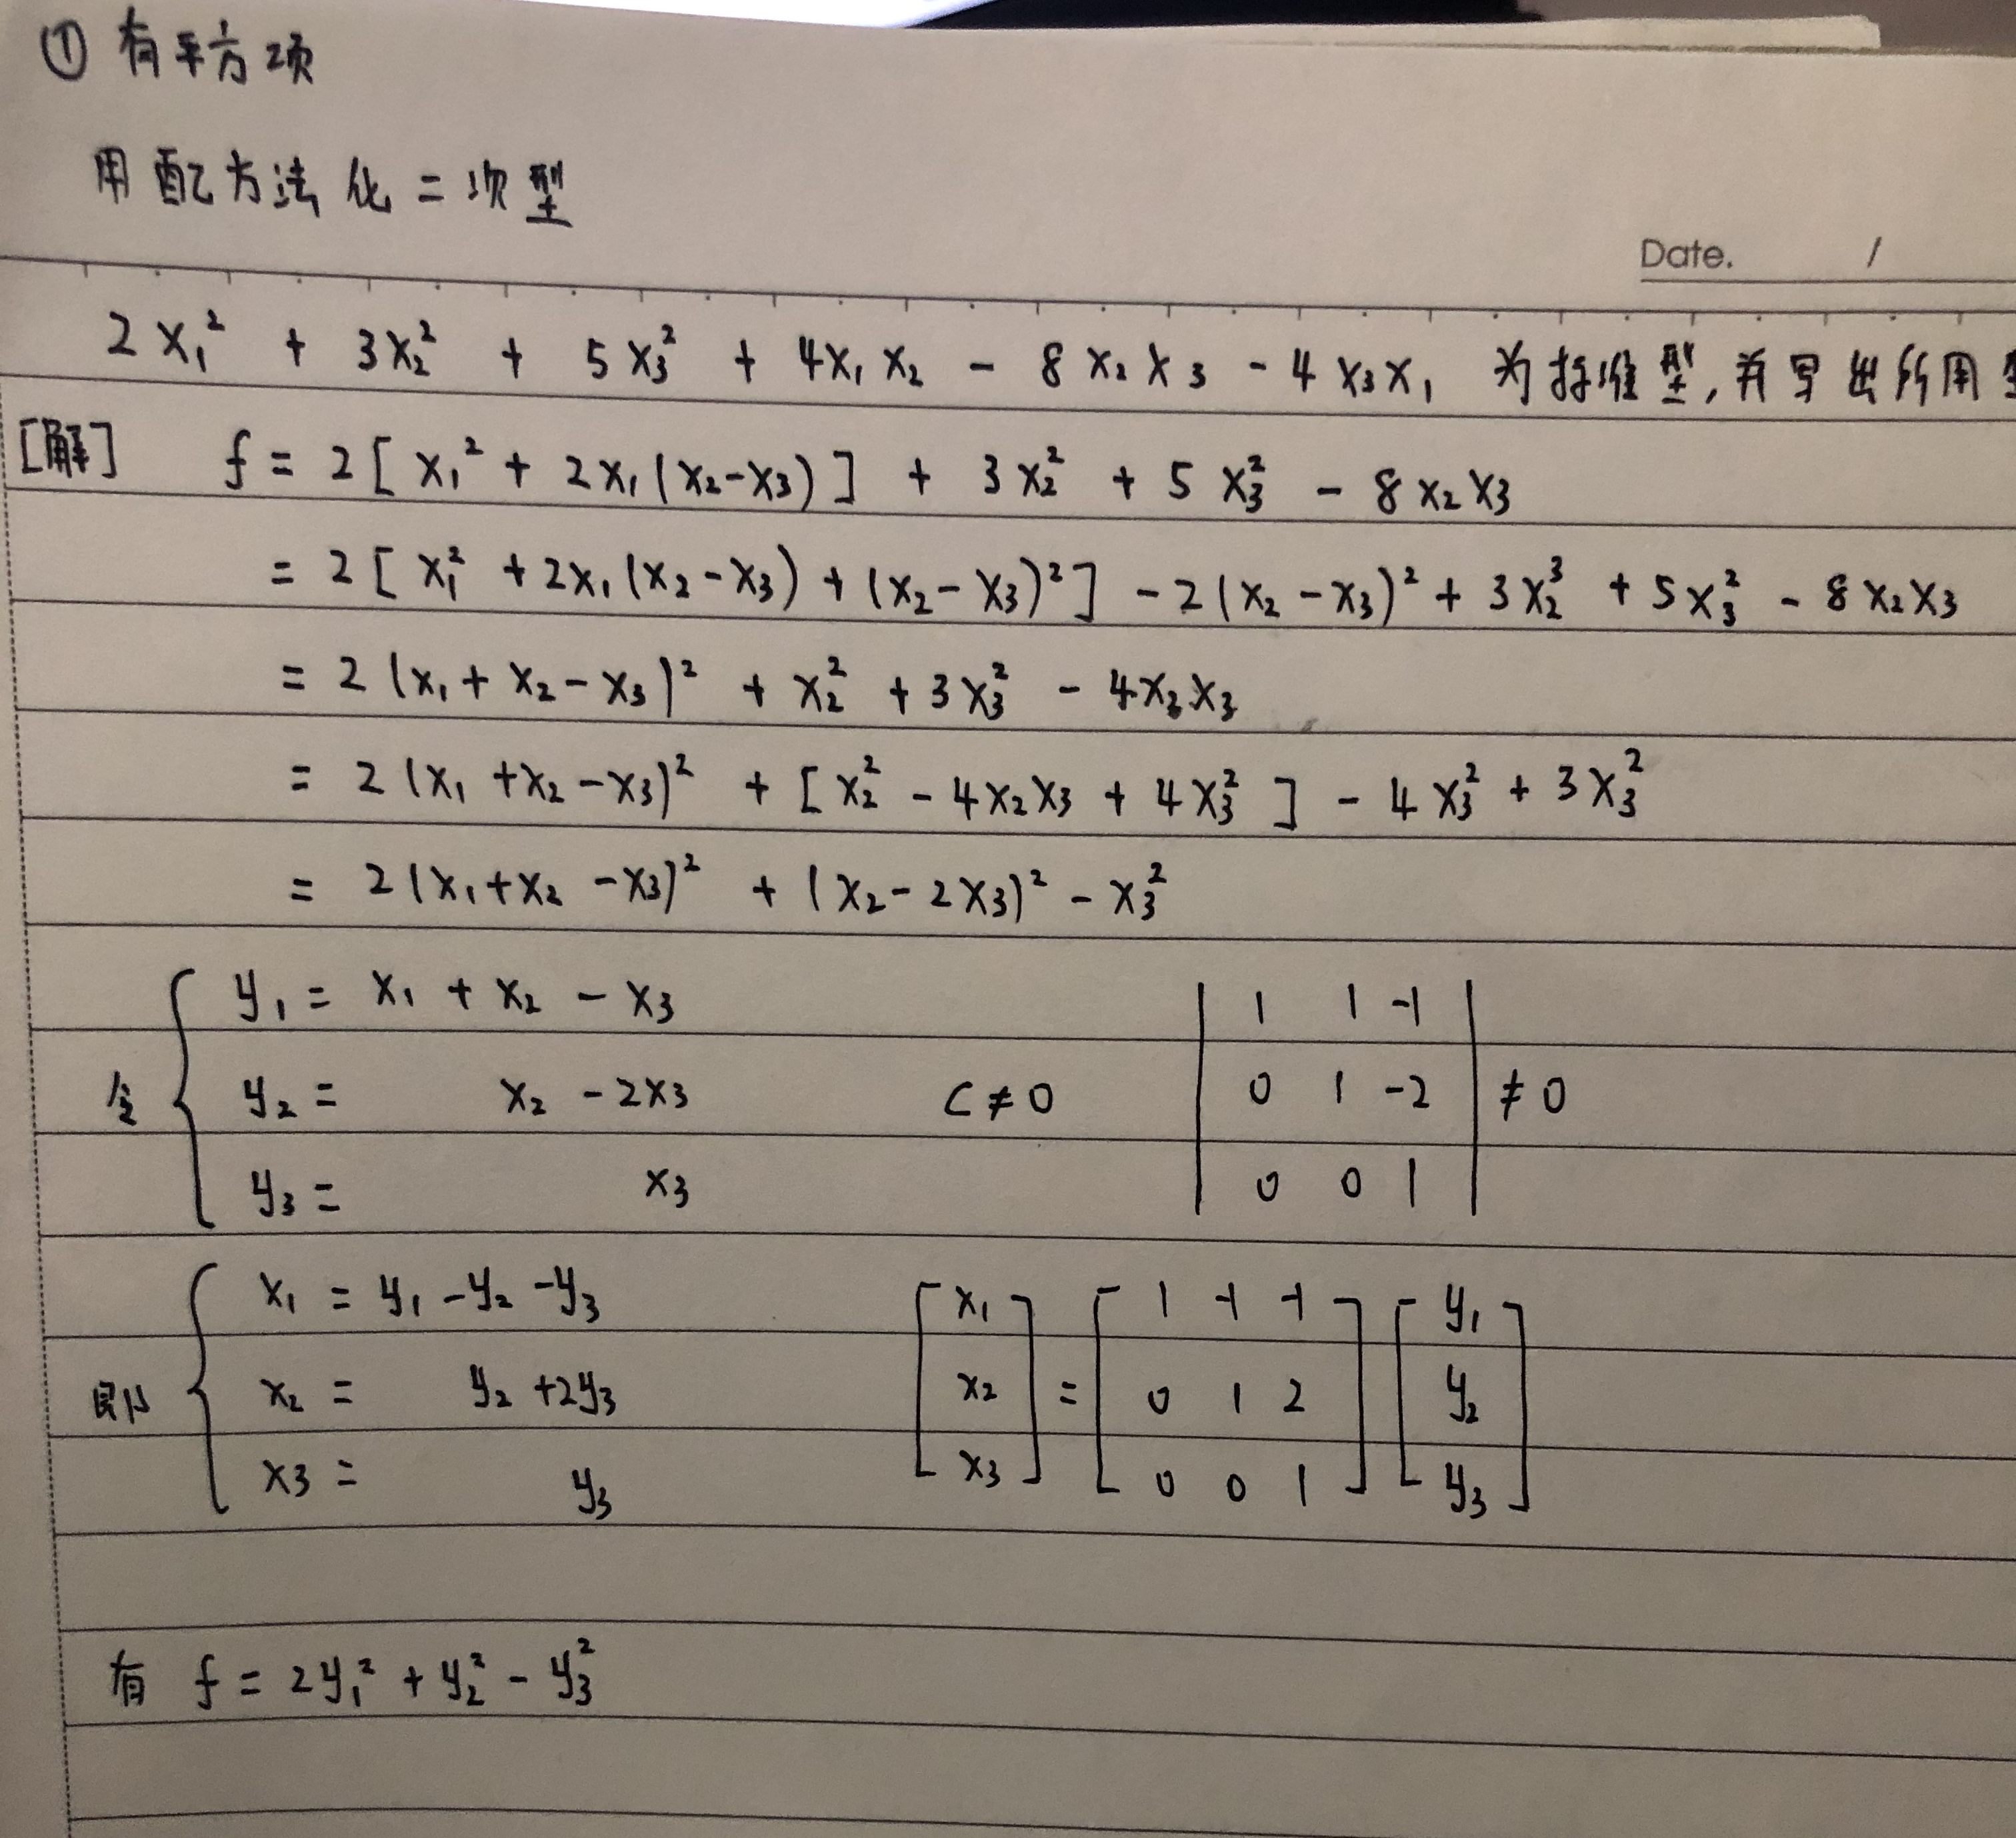 ① 有平方项
用配方法化二次型
Date. /
2x₁² + 3x₂² + 5x₃² + 4x₁x₂ - 8x₂x₃ - 4x₃x₁ 为标准型, 并写出所用
[解] f = 2[x₁² + 2x₁(x₂-x₃)] + 3x₂² + 5x₃² - 8x₂x₃
= 2[x₁² + 2x₁(x₂-x₃) + (x₂-x₃)²] - 2(x₂-x₃)² + 3x₂³ + 5x₃² - 8x₂x₃
= 2(x₁+x₂-x₃)² + x₂² + 3x₃² - 4x₂x₃
= 2(x₁+x₂-x₃)² + [x₂² - 4x₂x₃ + 4x₃²] - 4x₃² + 3x₃²
= 2(x₁+x₂-x₃)² + (x₂-2x₃)² - x₃²
令 { y₁ = x₁ + x₂ - x₃
y₂ = x₂ - 2x₃
y₃ = x₃
C≠0
| 1 1 -1 |
| 0 1 -2 | ≠ 0
| 0 0 1 |
即 { x₁ = y₁ - y₂ - y₃
x₂ = y₂ + 2y₃
x₃ = y₃
[x₁] = [1 -1 -1] [y₁]
[x₂] [0 1 2] [y₂]
[x₃] [0 0 1] [y₃]
有 f = 2y₁² + y₂² - y₃²